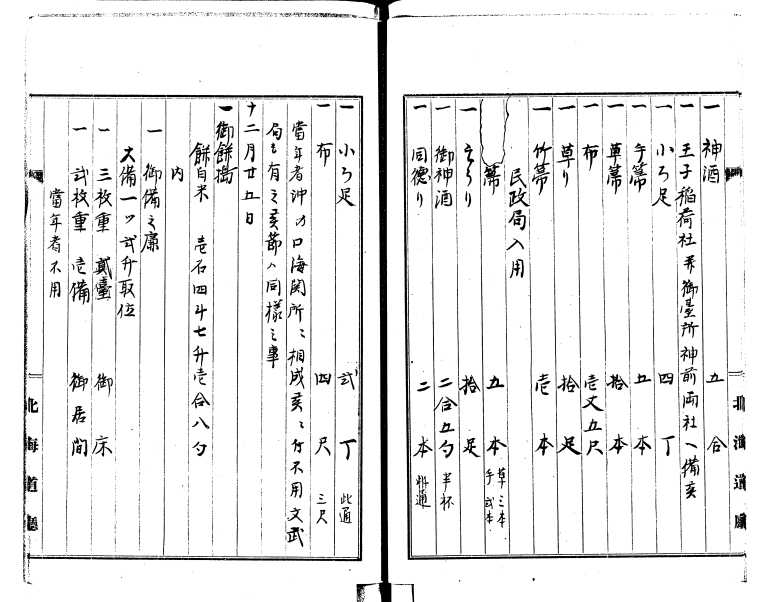 一 神酒 五合
一 王子稲荷社并御臺所神前両社へ備亥
一 小ろ足 四丁
一 手箒 五本
一 草箒 拾本
一 布 壱丈五尺
一 草り 拾足
一 竹箒 壱本
民政局入用
箒 五本 草三本 手弐本
一 そうり 拾足
一 御神酒 二合五勺 半杯
一 同徳り 二本 断通
北海道廳
一 小ろ足 弐丁 此通
一 布 四尺 三尺
當年者沖ノ口海関所ニ相成亥ニ付不用文武
局も有之亥節ハ同様之事
十二月廿五日
一 御餅搗
餅白米 壱石四斗七升壱合八勺
内
一 御備之廉
大備一ツ弐升取位
一 三枚重 貳臺 御床
一 弐枚重 壱備 御居間
當年者不用
北海道廳